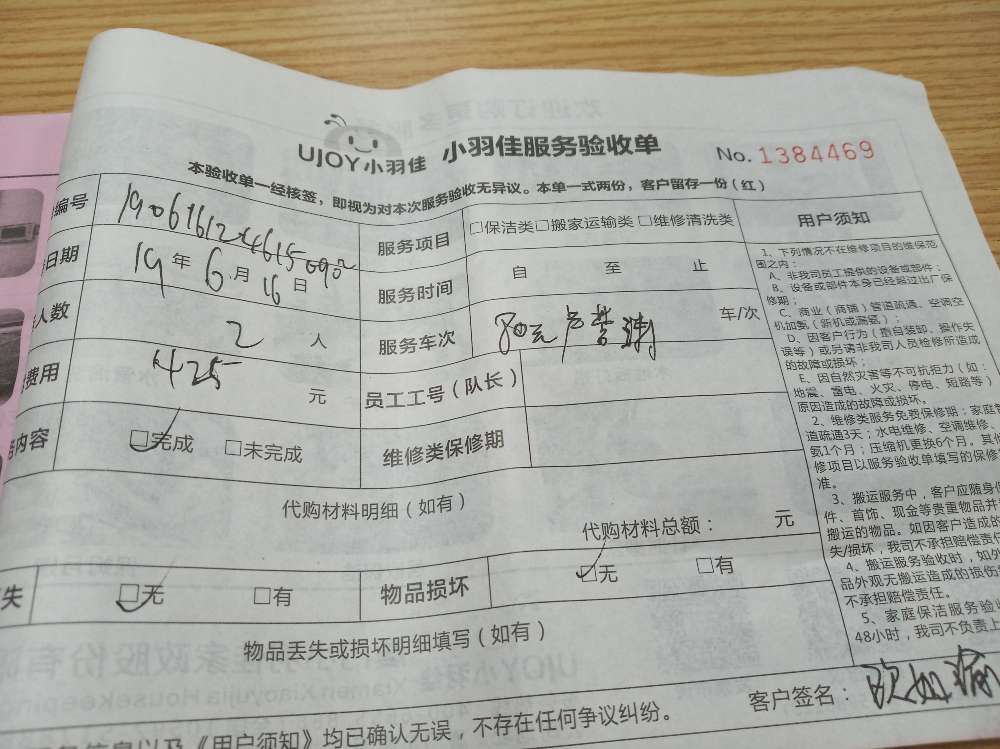 UJOY小羽佳 小羽佳服务验收单 No.1384469
本验收单一经核签，即视为对本次服务验收无异议。本单一式两份，客户留存一份（红）
编号 服务项目 □保洁类□搬家运输类□维修清洗类
日期 19年6月16日 服务时间 自 至 止
人数 2 人 服务车次 车/次
费用 425 元 员工工号（队长）
内容 □完成 □未完成 维修类保修期
代购材料明细（如有）
代购材料总额： 元
失 □无 □有 物品损坏 □无 □有
物品丢失或损坏明细填写（如有）
客户签名：
《用户须知》均已确认无误，不存在任何争议纠纷。
用户须知
1、下列情况不在维修项目的维保范
围之内：
A、非我司员工提供的设备或部件；
B、设备或部件本身已经超过出厂保
修期；
C、商业（商铺）管道疏通、空调空
机加氨（新机或漏氨）；
D、因客户行为（擅自装卸、操作失
误等）或另请非我司人员检修所造成
的故障或损坏；
E、因自然灾害等不可抗拒力（如：
地震、雷电、火灾、停电、短路等）
原因造成的故障或损坏。
2、维修类服务免费保修期：家庭管
道疏通3天；水电维修、空调维修、
氨1个月；压缩机更换6个月。其他
修项目以服务验收单填写的保修
准。
3、搬运服务中，客户应随身
件、首饰、现金等贵重物品并
搬运的物品。如因客户造成的
失/损坏，我司不承担赔偿责任
4、搬运服务验收时，如外
品外观无搬运造成的损伤
不承担赔偿责任。
5、家庭保洁服务验收
48小时，我司不负责上